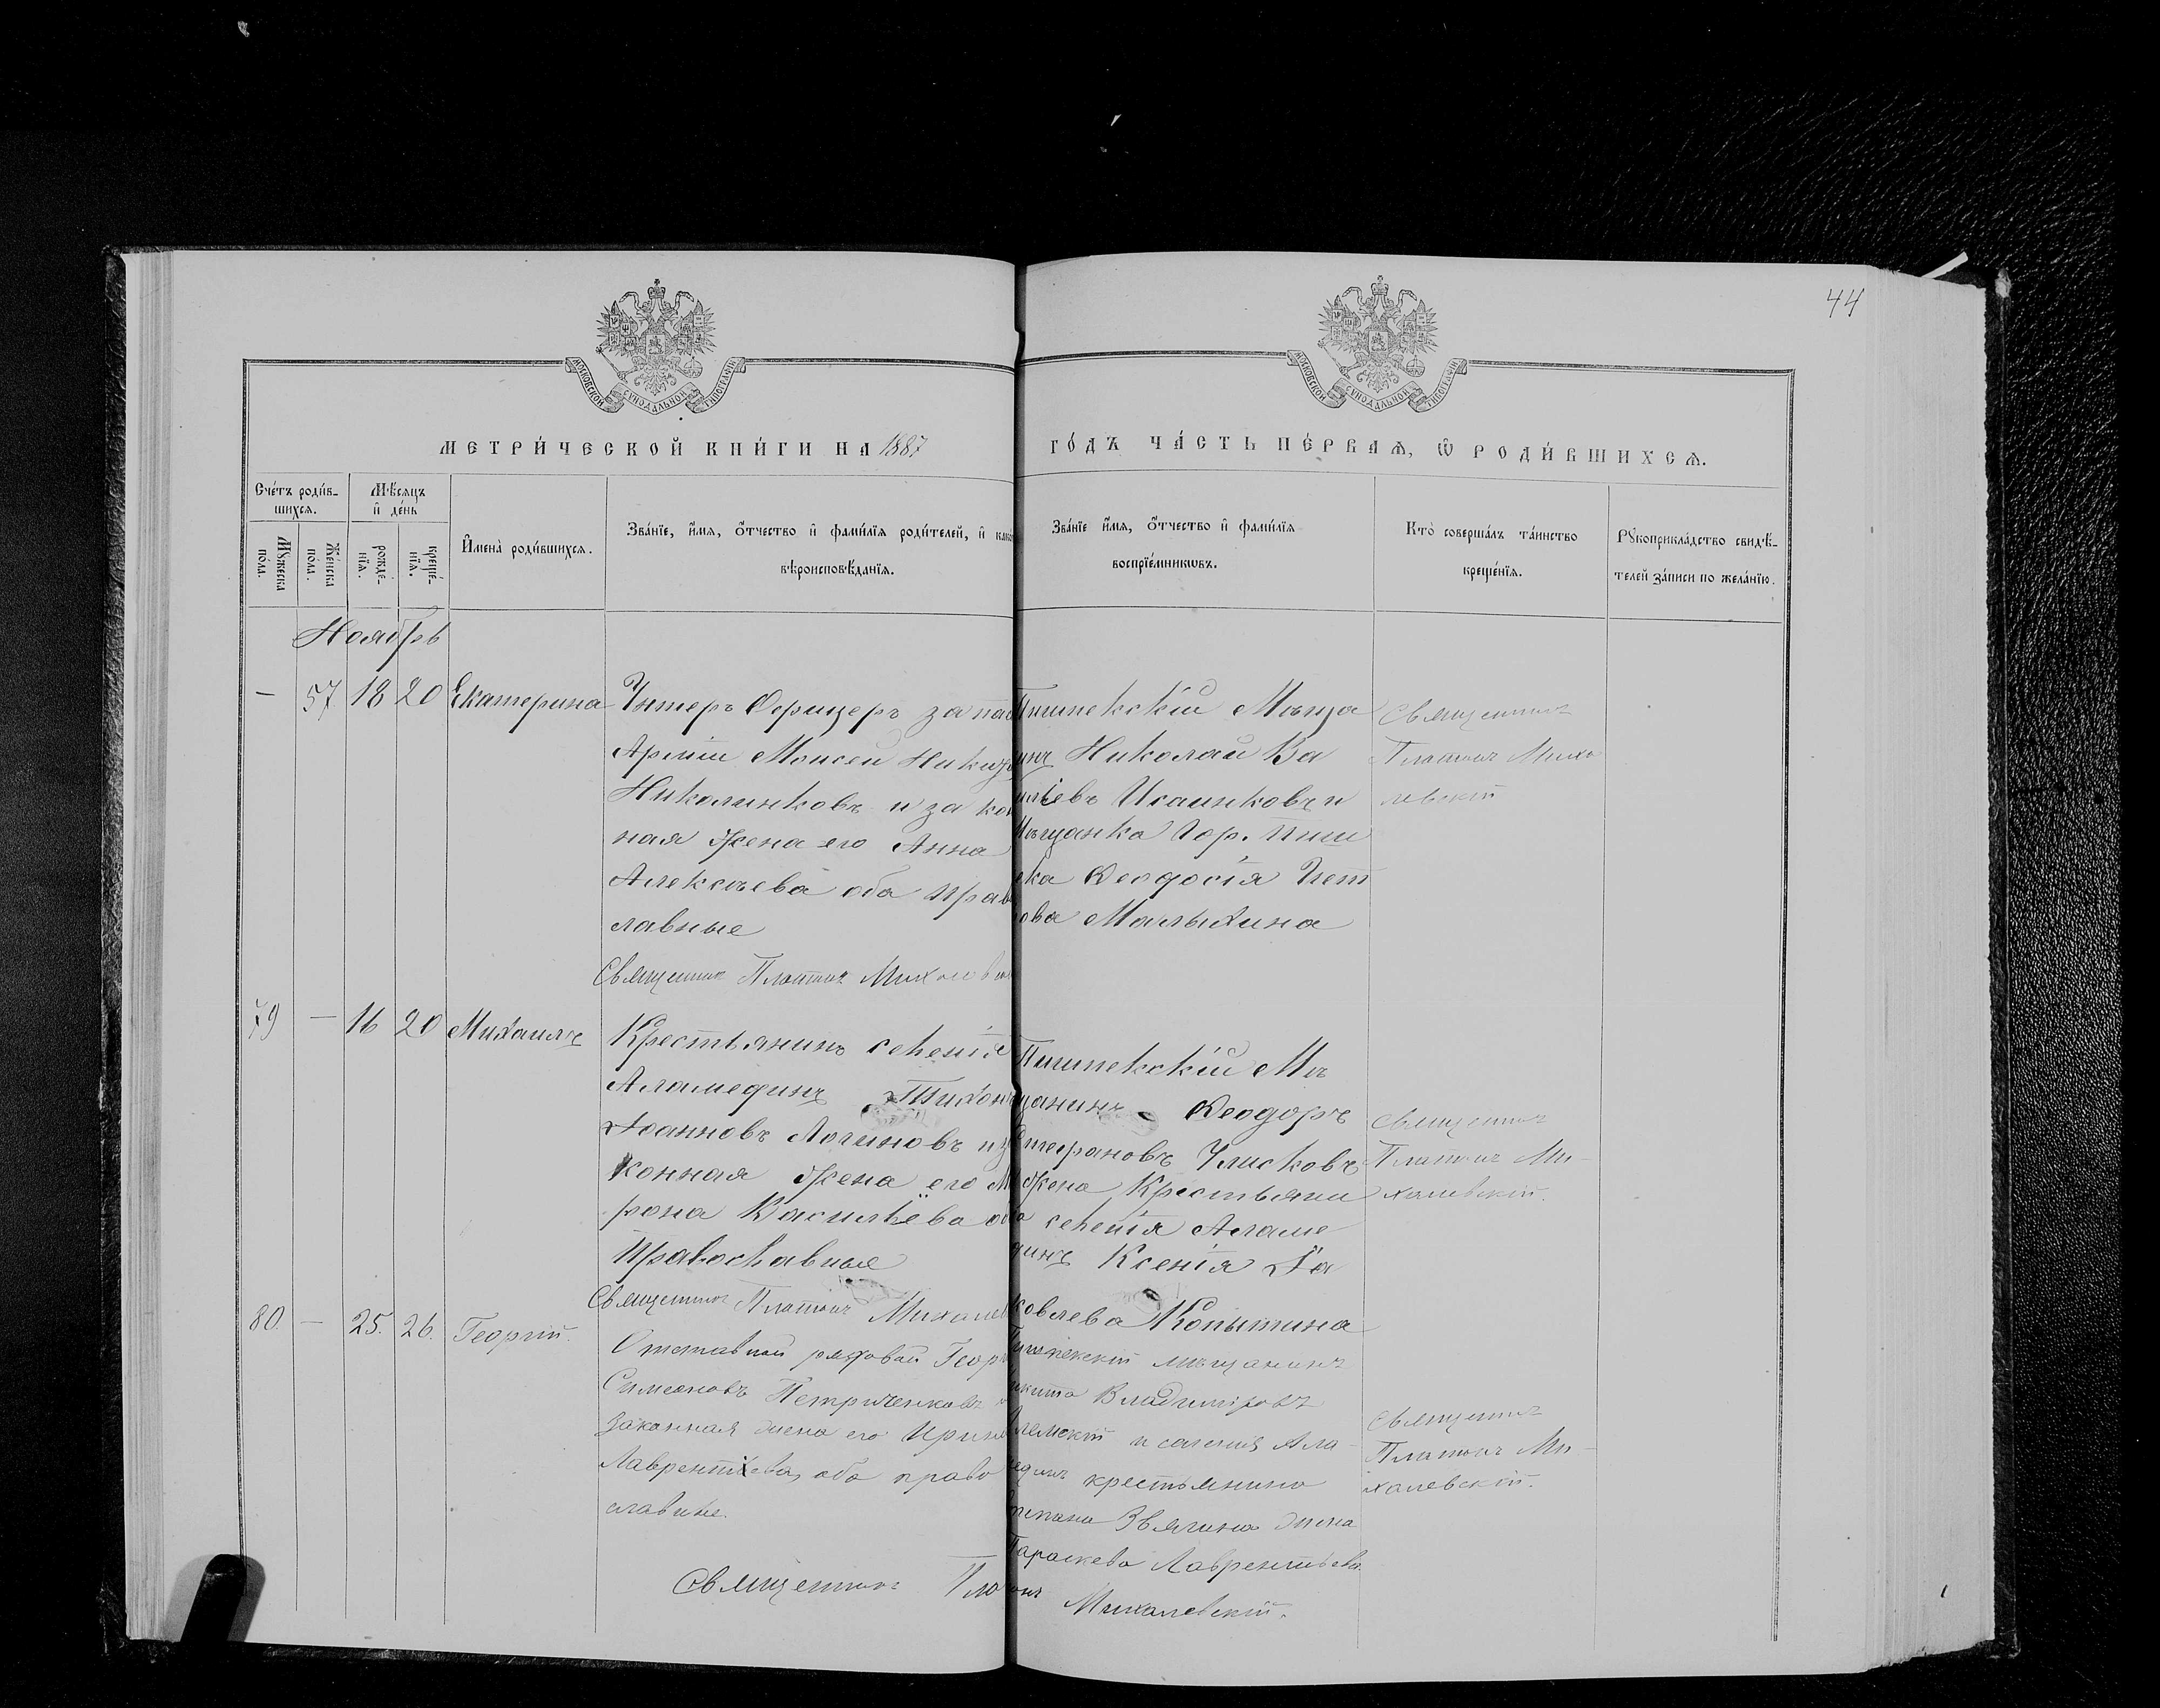 44
МОСКОВСКОЙ СУНОДАЛЬНОЙ ТИПОГРАФІИ
МОСКОВСКОЙ СУНОДАЛЬНОЙ ТИПОГРАФІИ
МЕТРИ́ЧЕСКОЙ КНИ́ГИ НА 1887
ГО́ДЪ ЧА́СТЬ ПЕ́РВАѦ, Ѡ РОДИ́ВШИХСѦ.
Сче́тъ роди́в-
шихсѧ.
Мѣ́сяцъ
и҆ де́нь
Мꙋ́жеска
по́ла.
Же́нска
по́ла.
рожде́-
нїѧ.
креще́-
нїѧ.
И҆мена̀ роди́вшихсѧ.
Зва́нїе, и҆́мѧ, ѻ҆́тчество и҆ фами́лїѧ роди́телей, и҆ како
вѣроисповѣ́данїѧ.
Зва́нїе и҆́мѧ, ѻ҆́тчество и҆ фами́лїѧ
воспрїе́мникѡвъ.
Кто̀ соверша́лъ та́инство
креще́нїѧ.
Рꙋкоприкла́дство свидѣ́-
телей за́писи по жела́нїю.
Ноябрь
— 57 18 20 Екатерина
Унтеръ Офицеръ запас
Арміи Моисей
Николинковъ и закон
ная жена его Анна
Алексѣева оба прав
лавные
Священник Платонъ Михалевск
Пишпекскій Мѣща
инъ Николай Ва
ильевъ Исаинковъ и
Мѣщанка Гор. Пиш
ека Ѳеодосія Пет
ова Малыхина
Священникъ
Платонъ Миха
левскій
79 — 16 20 Михаилъ
Крестьянинъ селенія
Аламединъ Тихонъ
Іоанновъ Логиновъ и з
конная жена его М
рона Васильева об
Православные
Священникъ Платонъ Михалев
Пишпекскій Мѣ
щанинъ Ѳеодоръ
Стефановъ Улисковъ
Жена Крестьяни
а селенія Аламе
динъ Ксенія Іа
ковлева Копытина
Священникъ
Платонъ Ми-
халевскій.
80. — 25. 26. Георгій.
Отставной рядовой Геор
Симеоновъ Петриченковъ и
законная жена его Ирина
Лаврентіева, оба право
славные.
Пишпекскій мѣщанинъ
икита Владиміровъ
и селенія Ала-
единъ крестьянина
тепана Звягина жена
Параскева Лаврентьева.
Священникъ
Платонъ Ми-
халевскій.
Священникъ Платонъ Михалевскій.